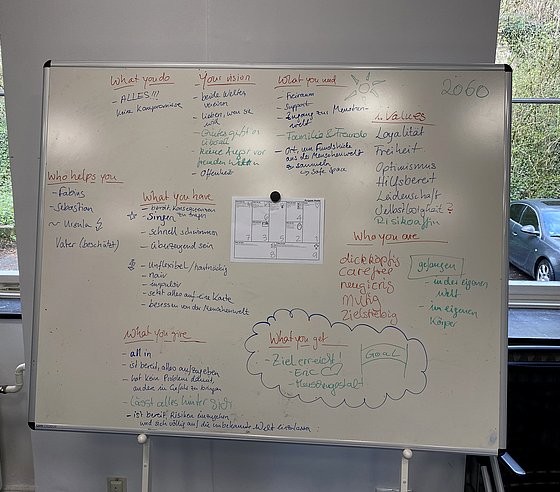 What you do
- ALLES !!!
keine Kompromisse
Your vision
- beide Welten
vereinen
- lieben, was sie
will
- Gutes gibt es
überall
- keine Angst vor
fremden
- Offenheit
What you need
- Freiraum
- Support
- Zugang zur Menschen-
welt
- Familie & Freunde
- Ort, um Fundstücke
aus der Menschenwelt
zu sammeln
↳ Safe Space
2060
Values
Loyalität
Freiheit
Optimismus
Hilfsbereit
Leidenschaft
Selbstlosigkeit ?
Risikoaffin
Who helps you
- Fabius
- Sebastian
~ Ursula
Vater (beschützt)
What you have
- bereit, Konsequenzen
zu tragen
- Singen
- schnell schwimmen
- überzeugend sein
- Unflexibel / hartnäckig
- naiv
- impulsiv
- setzt alles auf eine Karte
- besessen von der Menschenwelt
Who you are
dickköpfig
carefree
neugierig
mutig
zielstrebig
gefangen
- in der eigenen
Welt
- im eigenen
Körper
What you give
- all in
- ist bereit, alles aufzugeben
- hat kein Problem damit,
andere in Gefahr zu bringen
- Lässt alles hinter sich
- ist bereit, Risiken einzugehen
und sich völlig auf die unbekannte Welt einzulassen
What you get
- Ziel erreicht!
- Eric
- Menschengestalt
Goal